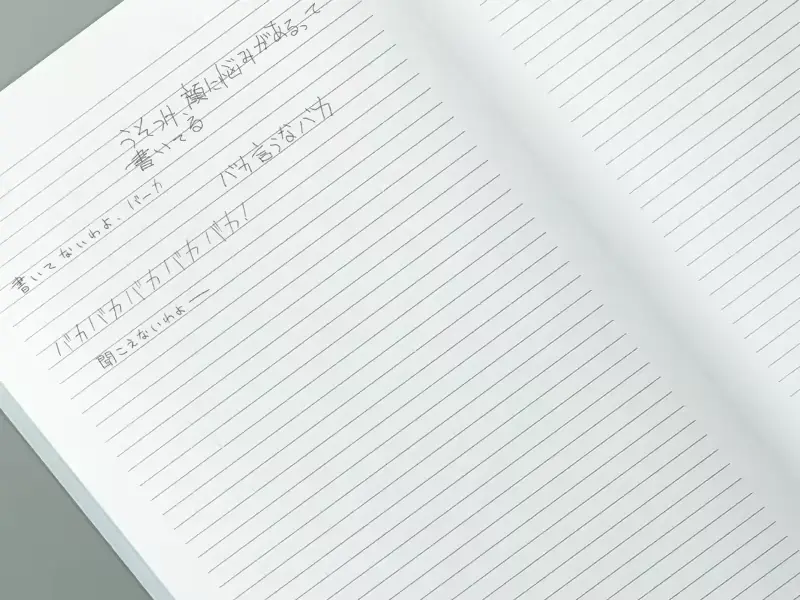 うそつけ、顔に悩みがあるって
書いてる
書いてないわよ、バーカ
バカ言うなバカ
バカバカバカバカバカ!
聞こえないわよー